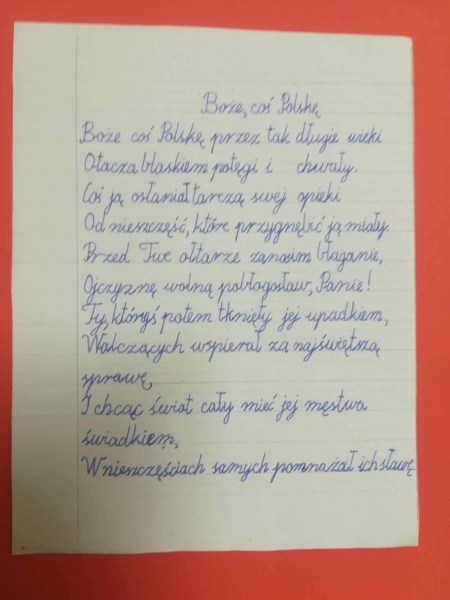 Boże, coś Polskę
Boże coś Polskę przez tak długie wieki
Otacza blaskiem potęgi i chwały.
Coś ją osłaniał tarczą swej opieki
Od nieszczęść, które przygnębić ją miały.
Przed Twe ołtarze zanosim błaganie,
Ojczyznę wolną pobłogosław, Panie!
Ty, któryś potem tknięty jej upadkiem,
Walczących wspierał za najświętszą
sprawę,
I chcąc świat cały mieć jej męstwa
świadkiem,
W nieszczęściach samych pomnażał ich sławę